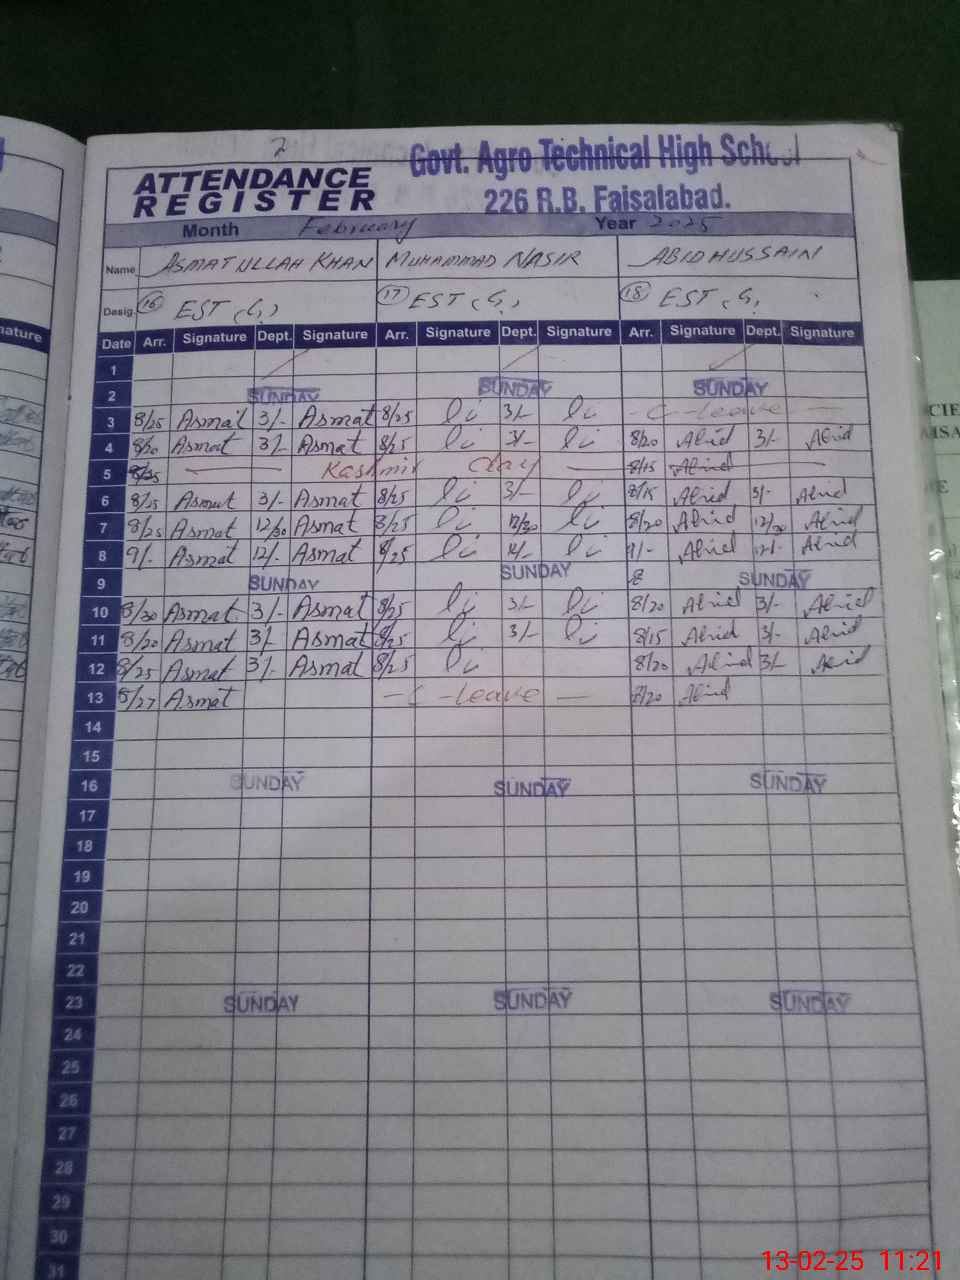 2
Govt. Agro Technical High School
ATTENDANCE
REGISTER
226 R.B. Faisalabad.
Month February Year 2025
Name ASMATULLAH KHAN MUHAMMAD NASIR ABID HUSSAIN
Desig. 16 EST (G) 17 EST (G) 18 EST (G)
Date Arr. Signature Dept. Signature Arr. Signature Dept. Signature Arr. Signature Dept. Signature
1
2 SUNDAY SUNDAY SUNDAY
3 8/25 Asmat 3/- Asmat 8/25 3/- - C - Leave -
4 8/20 Asmat 3/- Asmat 8/25 3/- 8/20 Abid 3/- Abid
5 8/25 Kashmir day 8/15 Abid
6 8/25 Asmat 3/- Asmat 8/25 3/- 8/15 Abid 3/- Abid
7 8/25 Asmat 12/30 Asmat 8/25 12/30 8/20 Abid 12/30 Abid
8 9/- Asmat 12/- Asmat 8/25 12/- 9/- Abid 12/- Abid
9 SUNDAY SUNDAY 8 SUNDAY
10 8/20 Asmat 3/- Asmat 8/25 3/- 8/20 Abid 3/- Abid
11 8/20 Asmat 3/- Asmat 8/25 3/- 8/15 Abid 3/- Abid
12 8/25 Asmat 3/- Asmat 8/25 8/20 Abid 3/- Abid
13 8/27 Asmat - C - Leave - 8/20 Abid
14
15
16 SUNDAY SUNDAY SUNDAY
17
18
19
20
21
22
23 SUNDAY SUNDAY SUNDAY
24
25
26
27
28
29
30
31
13-02-25 11:21